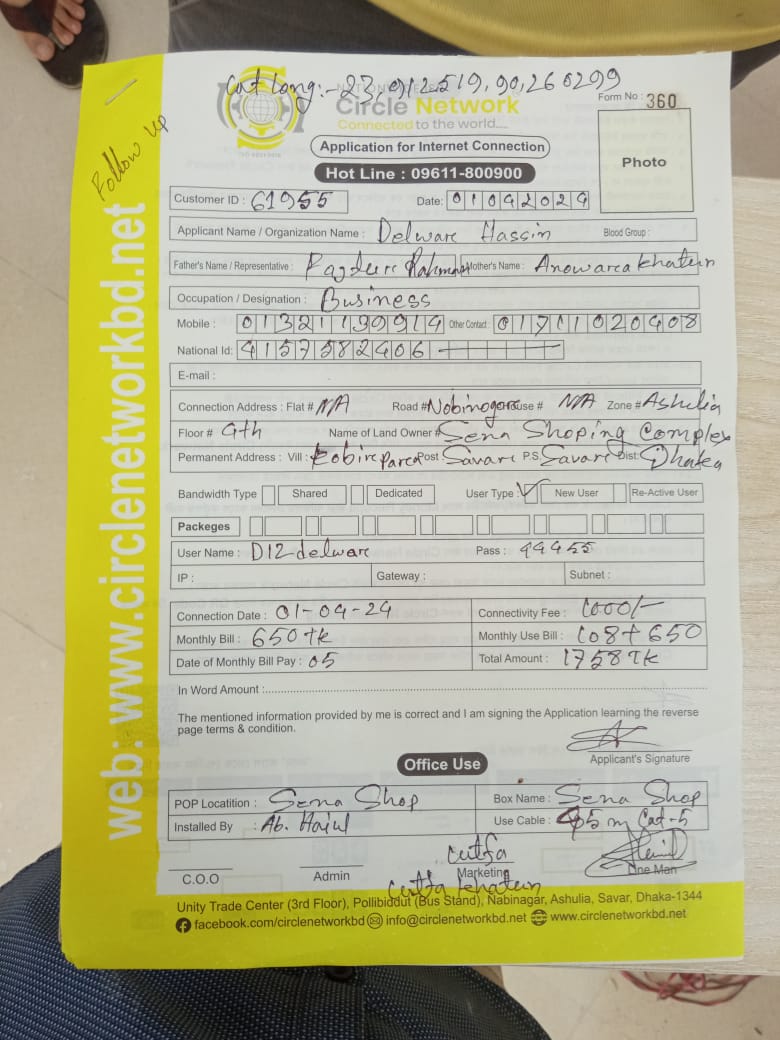 Cat Long:- 23,912519,90,260299
Circle Network
Connected to the world.....
Form No : 360
Application for Internet Connection
Hot Line : 09611-800900
Photo
Follow up
web: www.circlenetworkbd.net
Customer ID : 61955 Date: 01042024
Applicant Name / Organization Name : Delware Hassin Blood Group :
Father's Name / Representative : Rahman Mother's Name : Anowara khatun
Occupation / Designation : Business
Mobile : 01321139914 Other Contact : 01711020408
National Id: 4157582406
E-mail :
Connection Address : Flat # N/A Road # Nobinogor House # N/A Zone # Ashulia
Floor # 4th Name of Land Owner # Sena Shoping Complex
Permanent Address : Vill : Post Savar P.S. Savar Dist: Dhaka
Bandwidth Type Shared Dedicated User Type : New User Re-Active User
Packeges
User Name : D12delware Pass : 44455
IP : Gateway : Subnet :
Connection Date : 01-04-24 Connectivity Fee : 1000/-
Monthly Bill : 650 tk Monthly Use Bill : 108+650
Date of Monthly Bill Pay : 05 Total Amount : 1758 TK
In Word Amount :
The mentioned information provided by me is correct and I am signing the Application learning the reverse
page terms & condition.
Applicant's Signature
Office Use
POP Locatition : Sena Shop Box Name : Sena Shop
Installed By : Ab. Use Cable : 45m Cat-5
C.O.O Admin Marketing Line Man
khatun
Unity Trade Center (3rd Floor), Pollibiddut (Bus Stand), Nabinagar, Ashulia, Savar, Dhaka-1344
facebook.com/circlenetworkbd info@circlenetworkbd.net www.circlenetworkbd.net